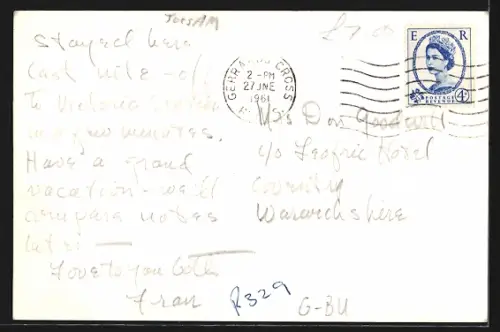 Tues AM
Stayed here
last nite - off
to Victoria
in a few minutes.
Have a grand
vacation - we'll
compare notes
later -
Love to you both
Fran
£7
GERRARDS CROSS
2 - PM
27 JNE
1961
E R
POSTAGE
REVENUE
4D
Mrs Don Goodwill
c/o Leofric Hotel
Coventry
Warwickshire
R329
G-BU